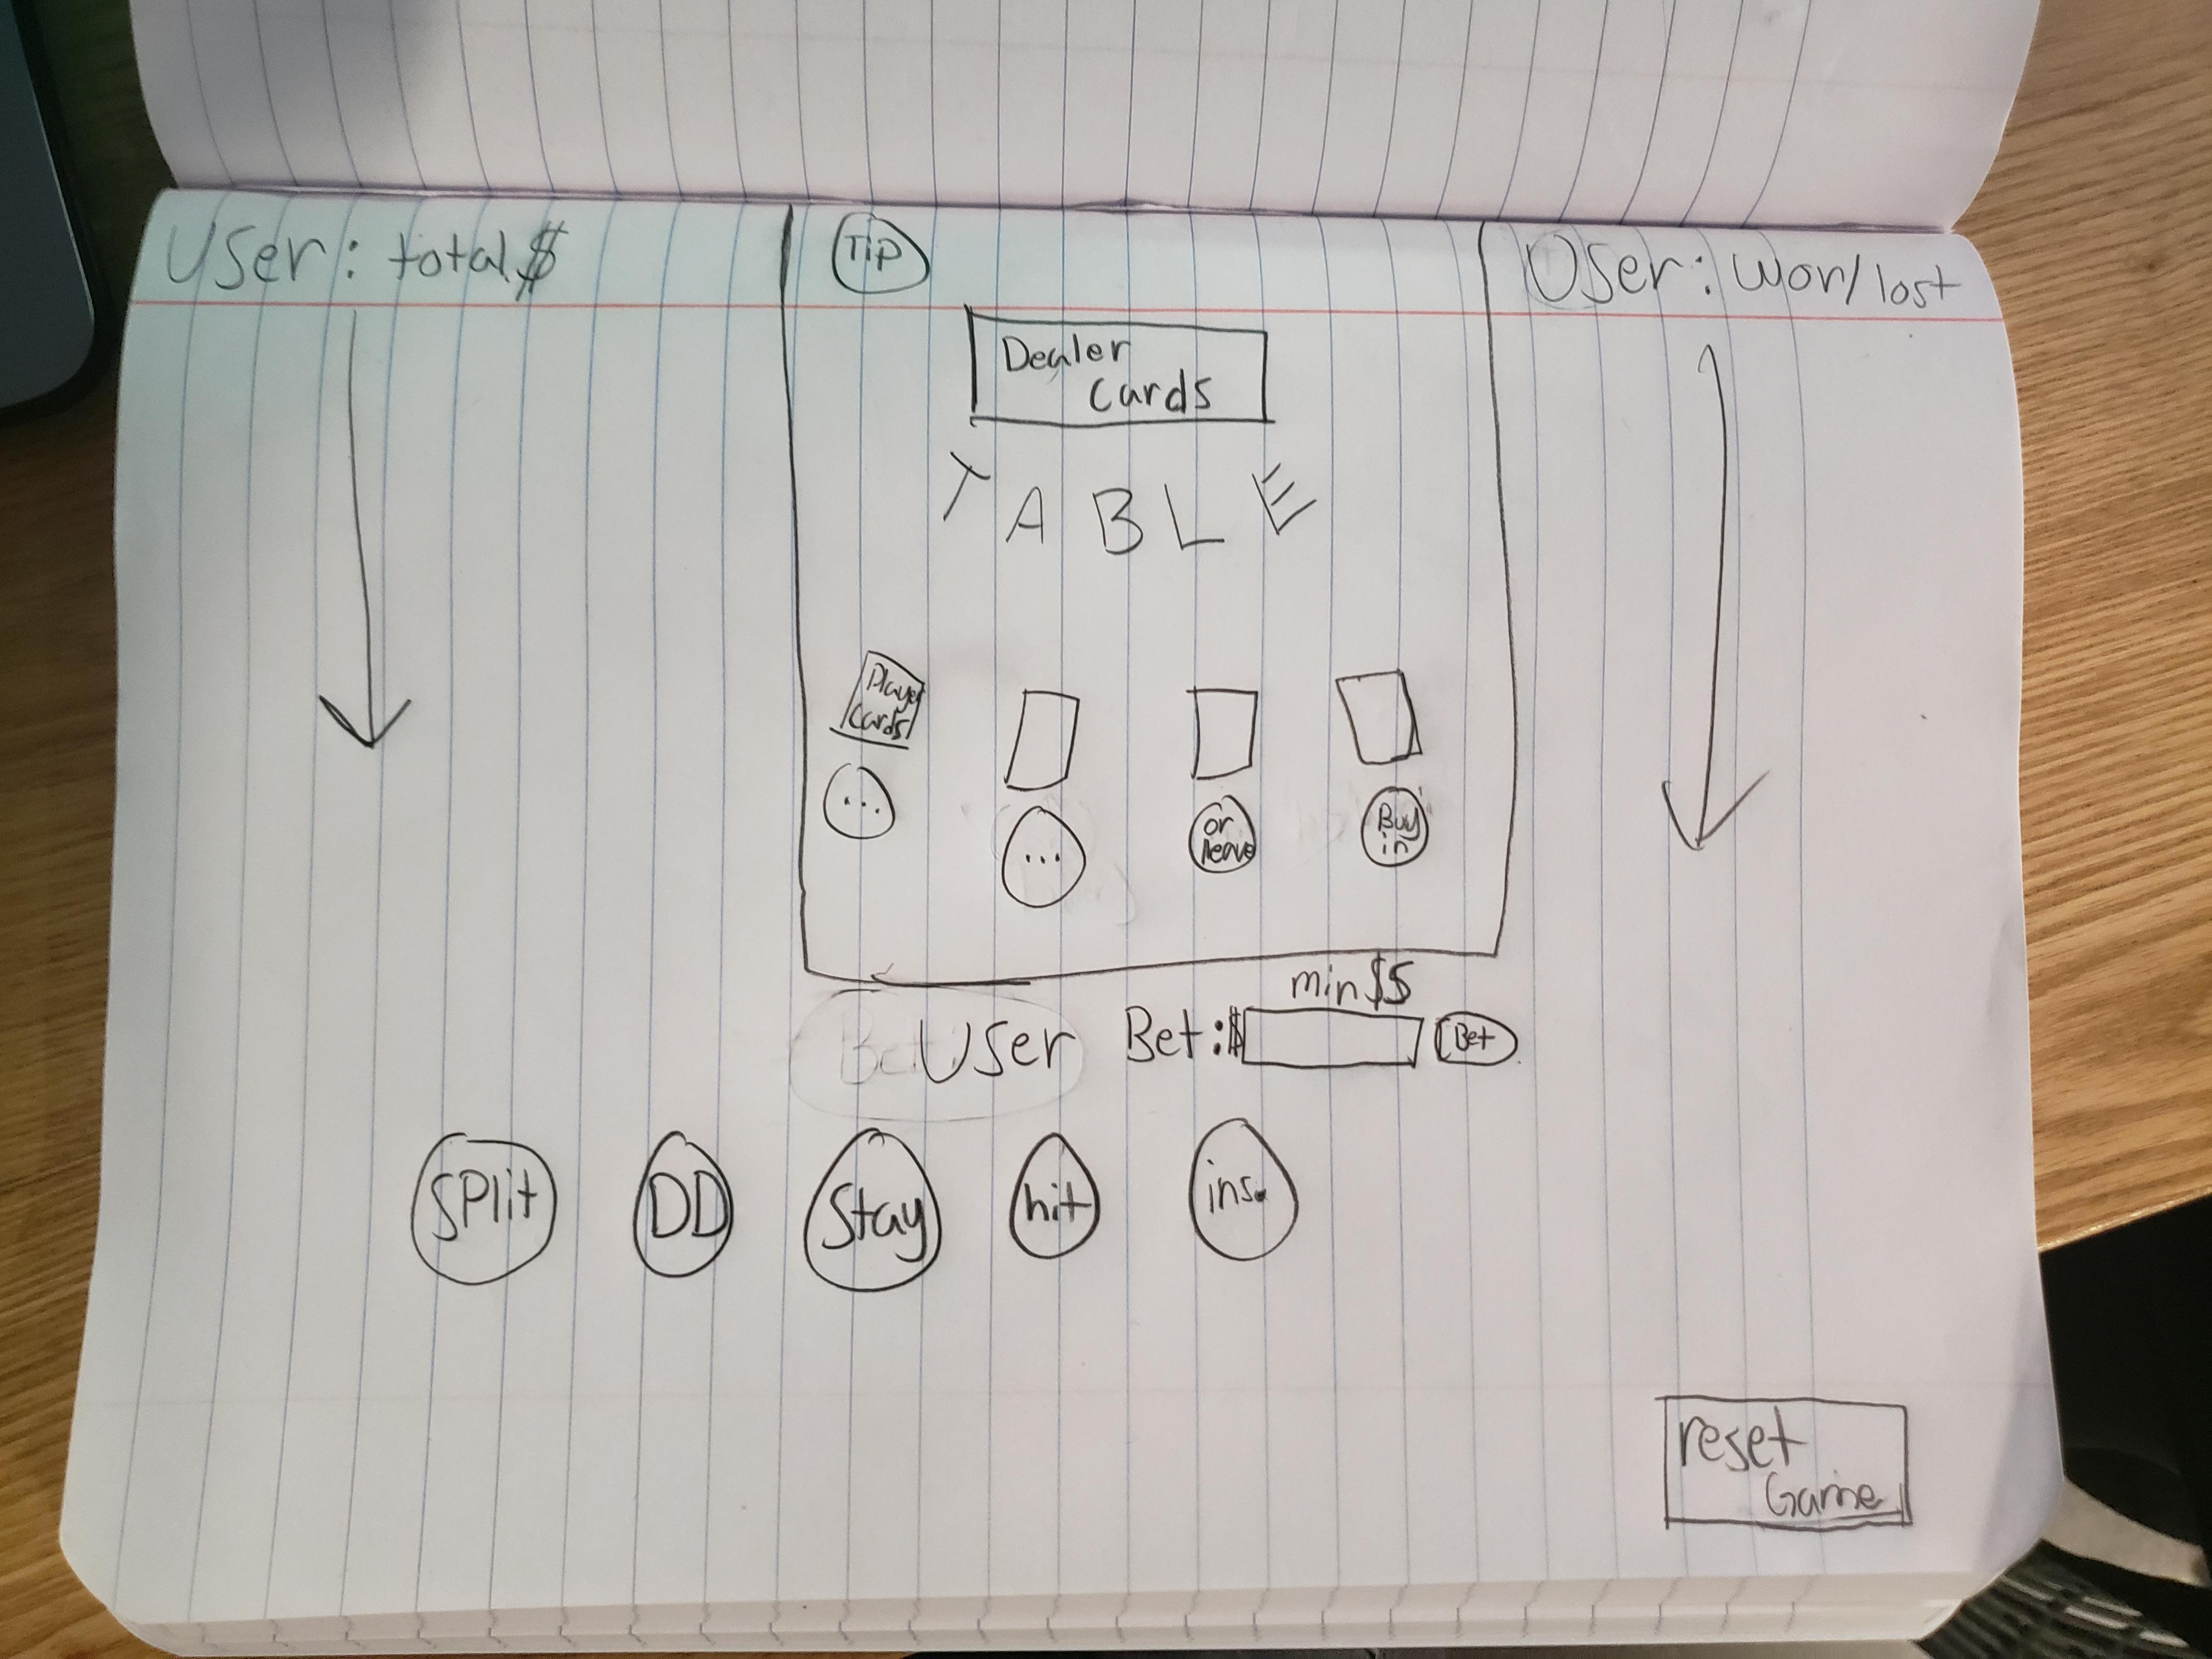 User: total $
Tip
User: won/lost
Dealer
Cards
TABLE
Player
Cards
...
...
or
leave
Buy
in
min $5
User Bet:$
Bet
SPlit
DD
Stay
hit
ins.
reset
Game